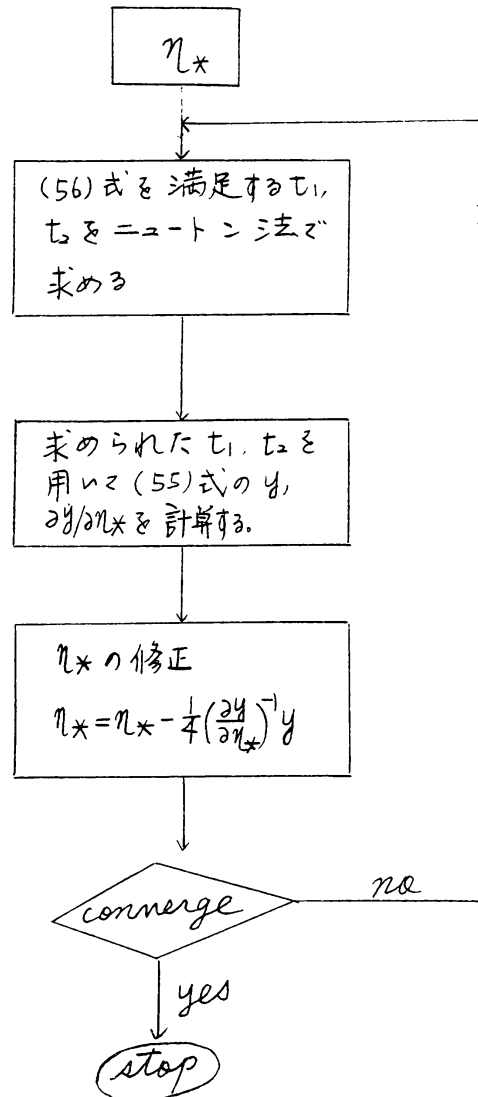 η*
(56)式を満足するt₁,
t₂をニュートン法で
求める
求められたt₁, t₂を
用いて(55)式のy,
∂y/∂η*を計算する.
η*の修正
η*=η*-1/4(∂y/∂η*)⁻¹y
converge
no
yes
stop